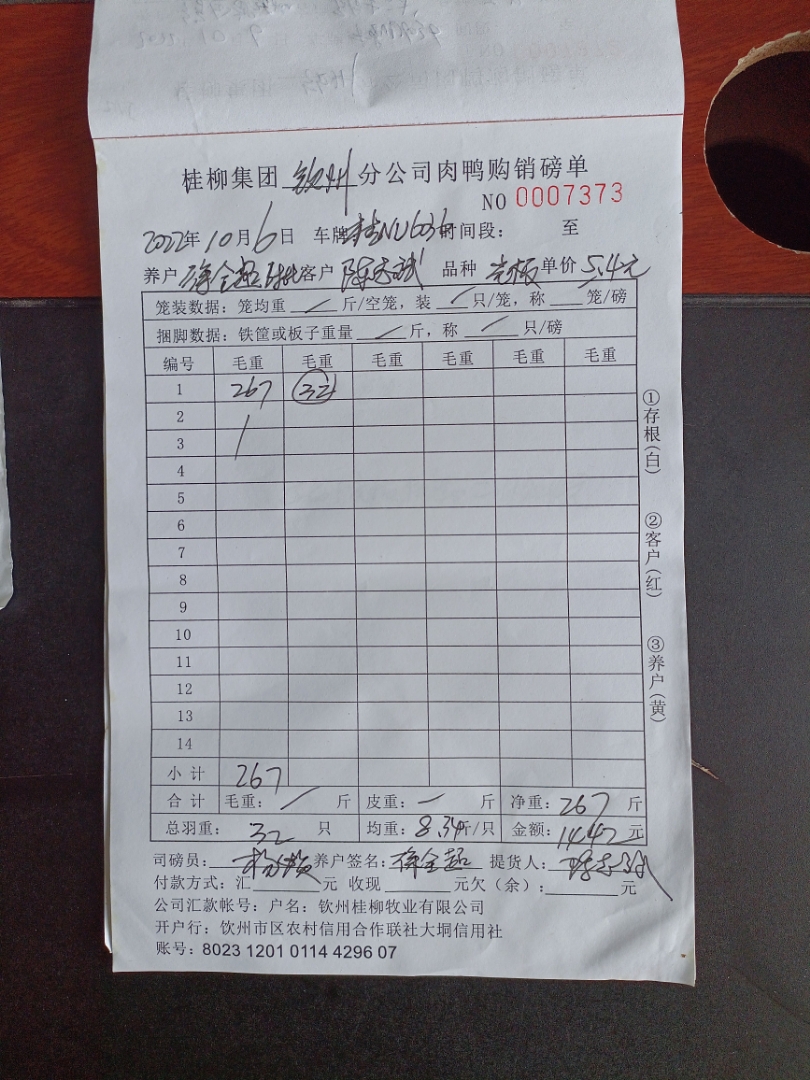 桂柳集团 钦州 分公司肉鸭购销磅单
NO 0007373
2022年10月6日 车牌 时间段： 至
养户 徐全超 客户 品种 单价 5.4元
笼装数据：笼均重 / 斤/空笼，装 / 只/笼，称 笼/磅
捆脚数据：铁筐或板子重量 / 斤，称 / 只/磅
编号 毛重 毛重 毛重 毛重 毛重 毛重
1 267 32
2
3
4
5
6
7
8
9
10
11
12
13
14
小计 267
合计 毛重： / 斤 皮重： 一 斤 净重：267 斤
总羽重： 32 只 均重：8.34斤/只 金额：1442 元
司磅员： 养户签名：徐全超 提货人：
付款方式：汇 元 收现 元欠（余）： 元
公司汇款帐号：户名：钦州桂柳牧业有限公司
开户行：钦州市区农村信用合作联社大垌信用社
账号：8023 1201 0114 4296 07
①存根(白)
②客户(红)
③养户(黄)